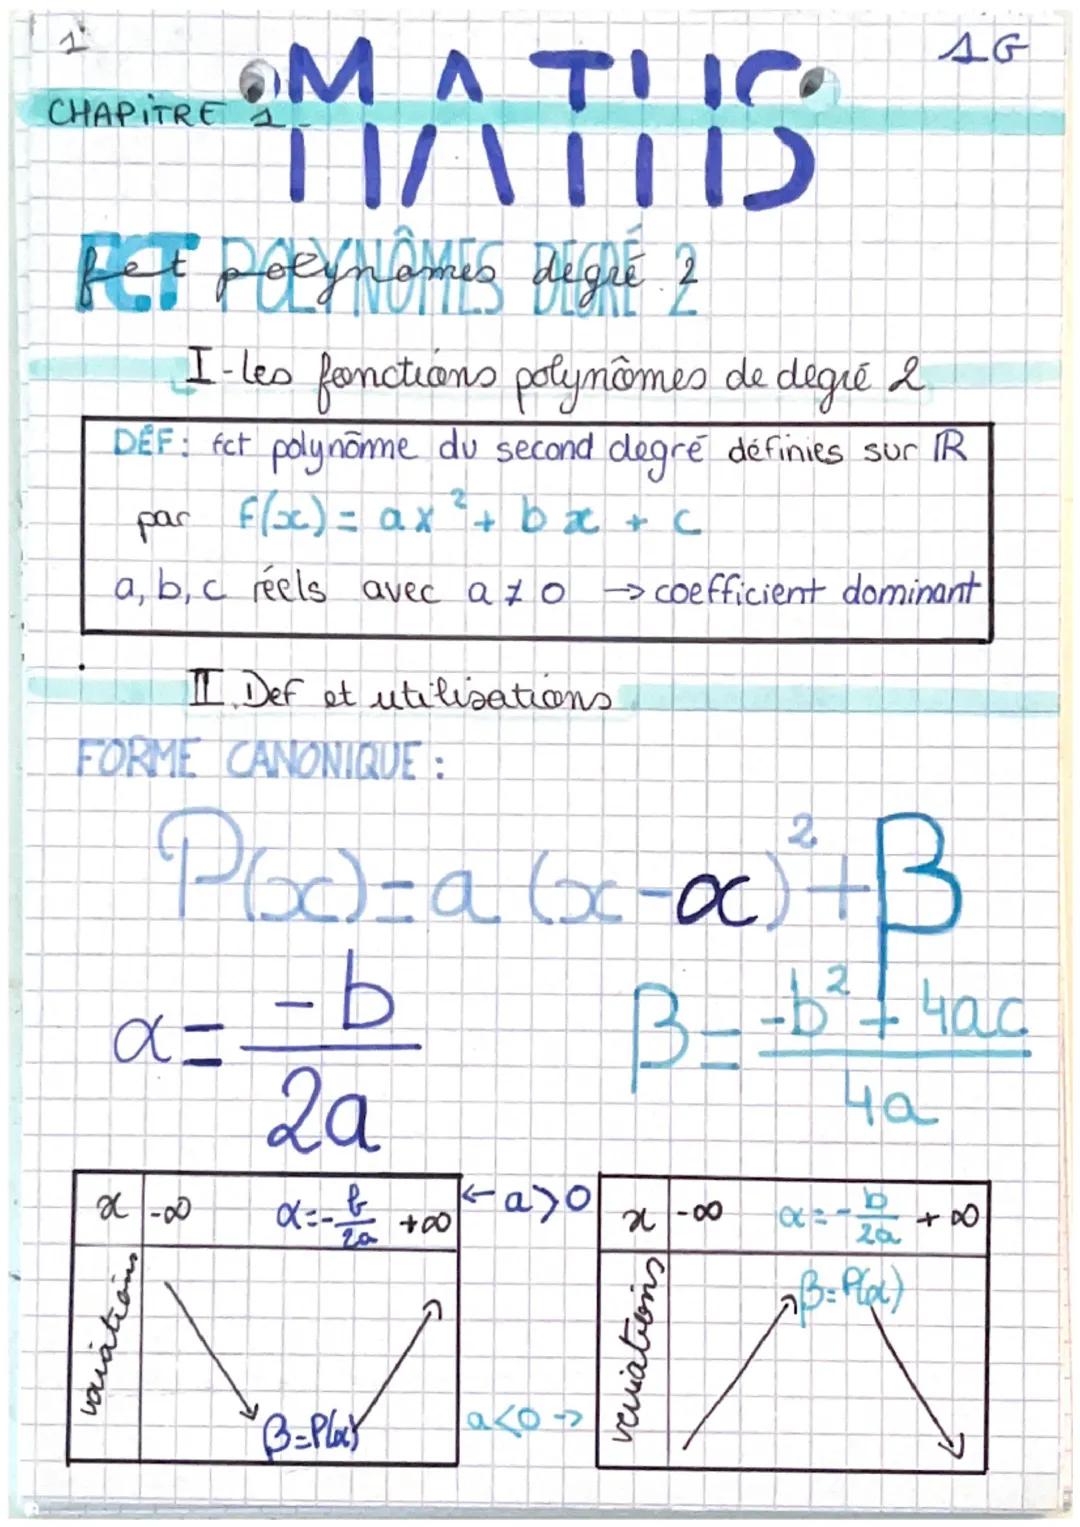 1
1G
MATHS
CHAPiTRE 1
fct polynômes degré 2
I - les fonctions polynômes de degré 2
DÉF: fct polynôme du second degré définies sur ℝ
par f(x) = ax² + bx + c
a, b, c réels avec a ≠ 0 → coefficient dominant
II. Def et utilisations
FORME CANONIQUE :
P(x) = a (x - α)² + β
α = -b / 2a
β = -b² + 4ac / 4a
x -∞ α = - b/2a +∞
← a > 0
variations
β = P(α)
a < 0 →
x -∞ α = - b/2a + ∞
variations
β = P(α)